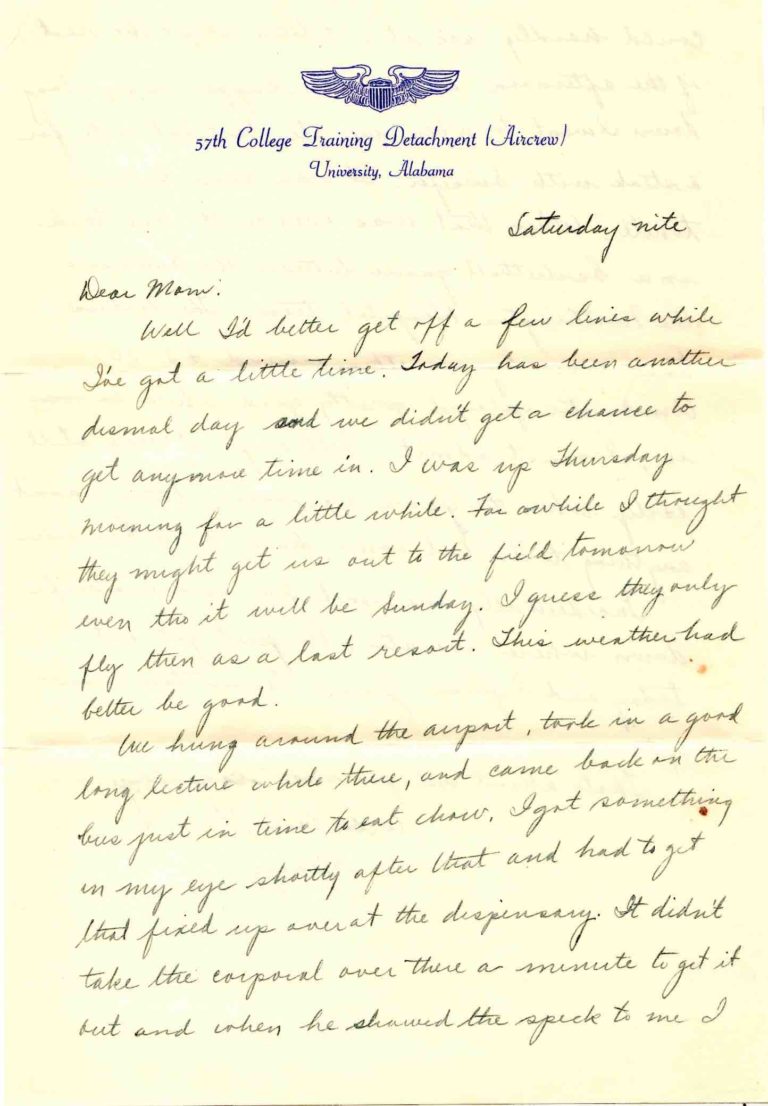 57th College Training Detachment (Aircrew)
University, Alabama
Saturday nite
Dear Mom:
Well I'd better get off a few lines while
I've got a little time. Today has been another
dismal day and we didn't get a chance to
get anymore time in. I was up Thursday
morning for a little while. For awhile I thought
they might get us out to the field tomorrow
even tho it will be Sunday. I guess they only
fly then as a last resort. This weather had
better be good.
We hung around the airport, took in a good
long lecture while there, and came back on the
bus just in time to eat chow. I got something
in my eye shortly after that and had to get
that fixed up over at the dispensary. It didn't
take the corporal over there a minute to get it
out and when he showed the speck to me I